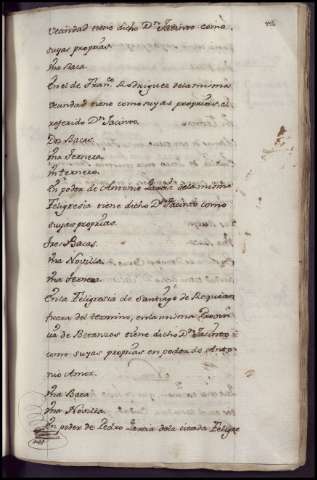 Vecindad tiene dicho Dn. Jacinto como
suyas proprias.
Una Baca.
En el de Franco. Rodriguez de la misma
vecindad tiene como suyas proprias el
referido Dn. Jacinto.
Dos Bacas.
Una ternera.
Un ternero.
En poder de Antonio Garcia de la misma
Feligresia tiene dicho Dn. Jacinto como
suyas proprias.
Tres Bacas.
Una Novilla.
Una Ternera.
En la Feligresia de Santiago de Requian
fuera del termino, en la misma Provin
cia de Betanzos tiene dicho Dn. Jacinto
como suyas proprias en poder de Anto
nio Amor.
Una Baca
Una Novilla.
En poder de Pedro Garcia de la citada Feligre